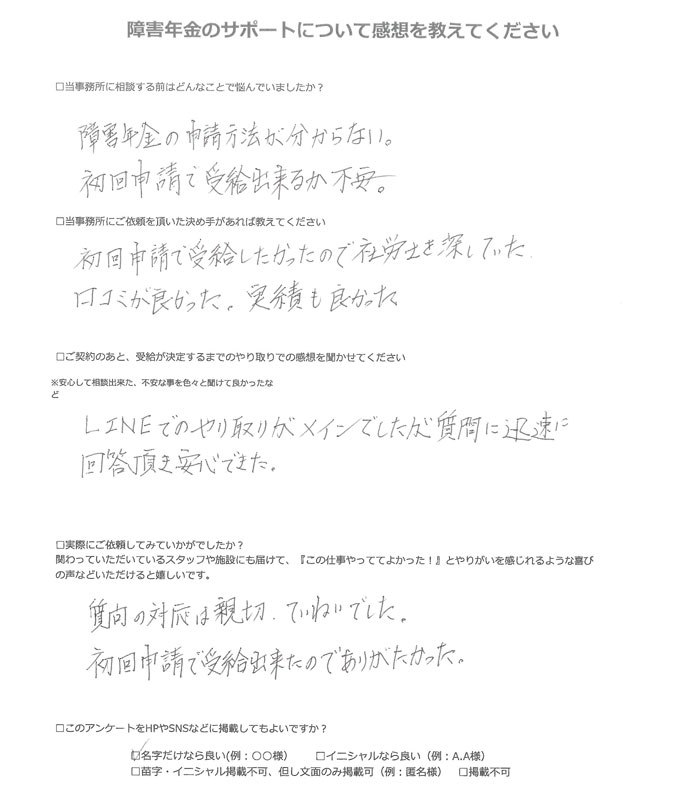 障害年金のサポートについて感想を教えてください
□当事務所に相談する前はどんなことで悩んでいましたか？
障害年金の申請方法が分からない。
初回申請で受給出来るか不安。
□当事務所にご依頼を頂いた決め手があれば教えてください
初回申請で受給したかったので社労士を探していた.
口コミが良かった。実績も良かった
□ご契約のあと、受給が決定するまでのやり取りでの感想を聞かせてください
※安心して相談出来た、不安な事を色々と聞けて良かったな
ど
LINEでのやり取りがメインでしたが質問に迅速に
回答頂き安心できた。
□実際にご依頼してみていかがでしたか？
関わっていただいているスタッフや施設にも届けて、『この仕事やっててよかった！』とやりがいを感じれるような喜び
の声などいただけると嬉しいです。
質向の対応は親切、ていねいでした。
初回申請で受給出来たのでありがたかった。
□このアンケートをHPやSNSなどに掲載してもよいですか？
☑名字だけなら良い(例：〇〇様） □イニシャルなら良い（例：A.A様）
□苗字・イニシャル掲載不可、但し文面のみ掲載可（例：匿名様） □掲載不可